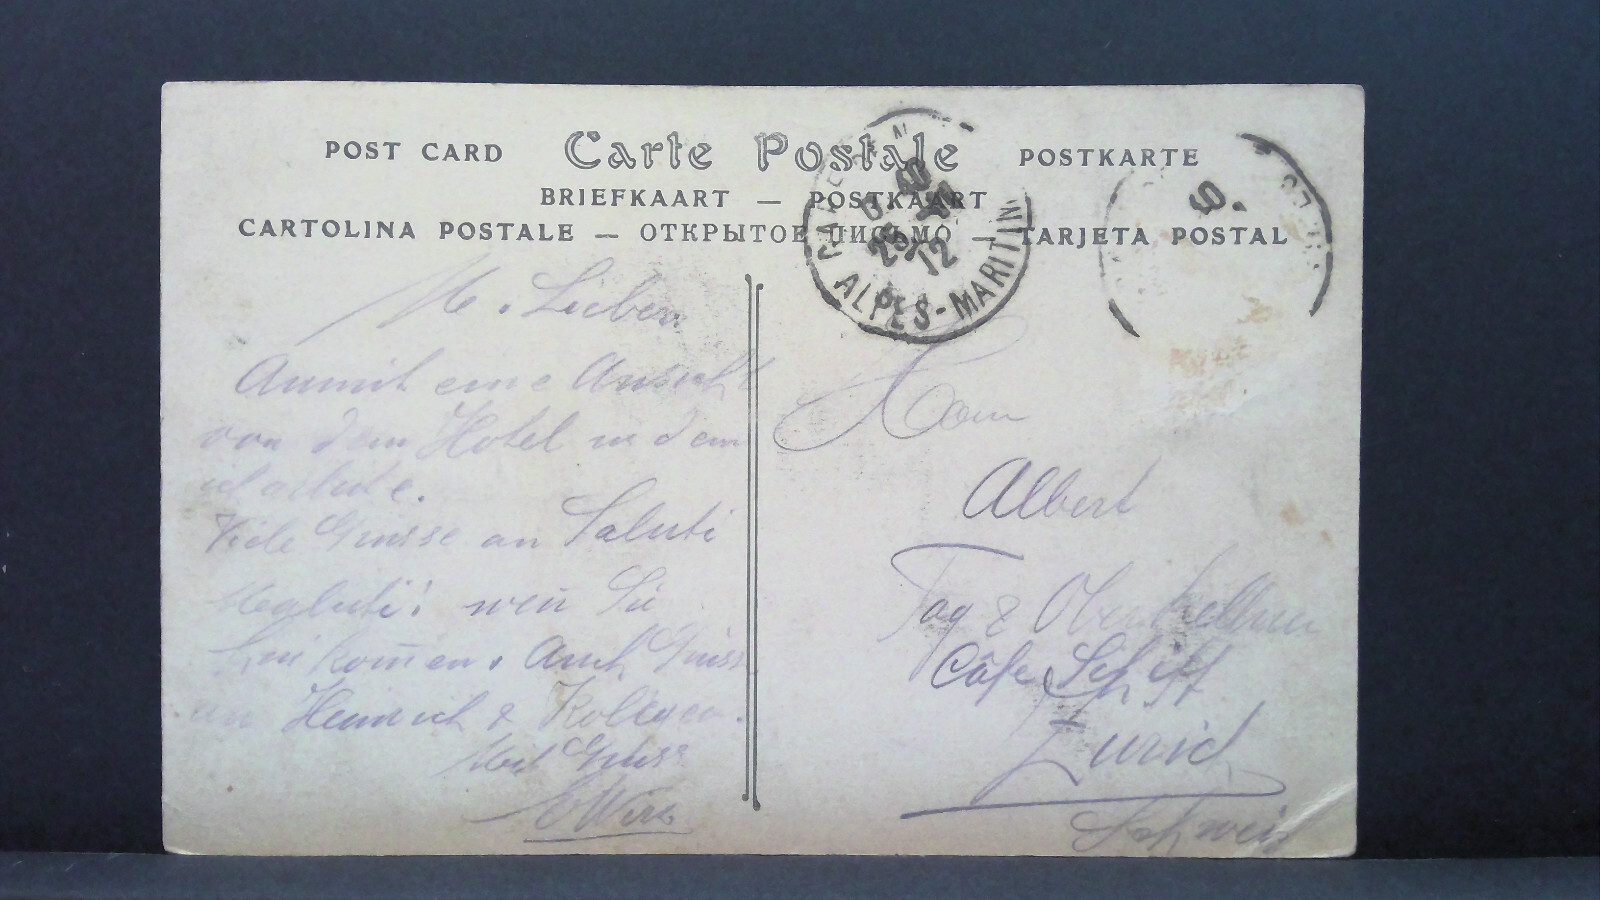 POST CARD Carte Postale POSTKARTE
BRIEFKAART — POSTKAART
CARTOLINA POSTALE — ОТКРЫТОЕ ПИСЬМО — TARJETA POSTAL
6 40
25 12
ALPES-MARITIM
M. Lieber
Anmit eine Ansicht
von dem Hotel in dem
ich arbeite.
Viele Grüsse an Saluti
wen̄ Sie
kom̄en. Auch Grüss
an Heinrich & Kollegen.
Mit Gruss
Herrn
Albert
Tag & Oberkellner
Câfe Schiff
Zürich
Schweiz